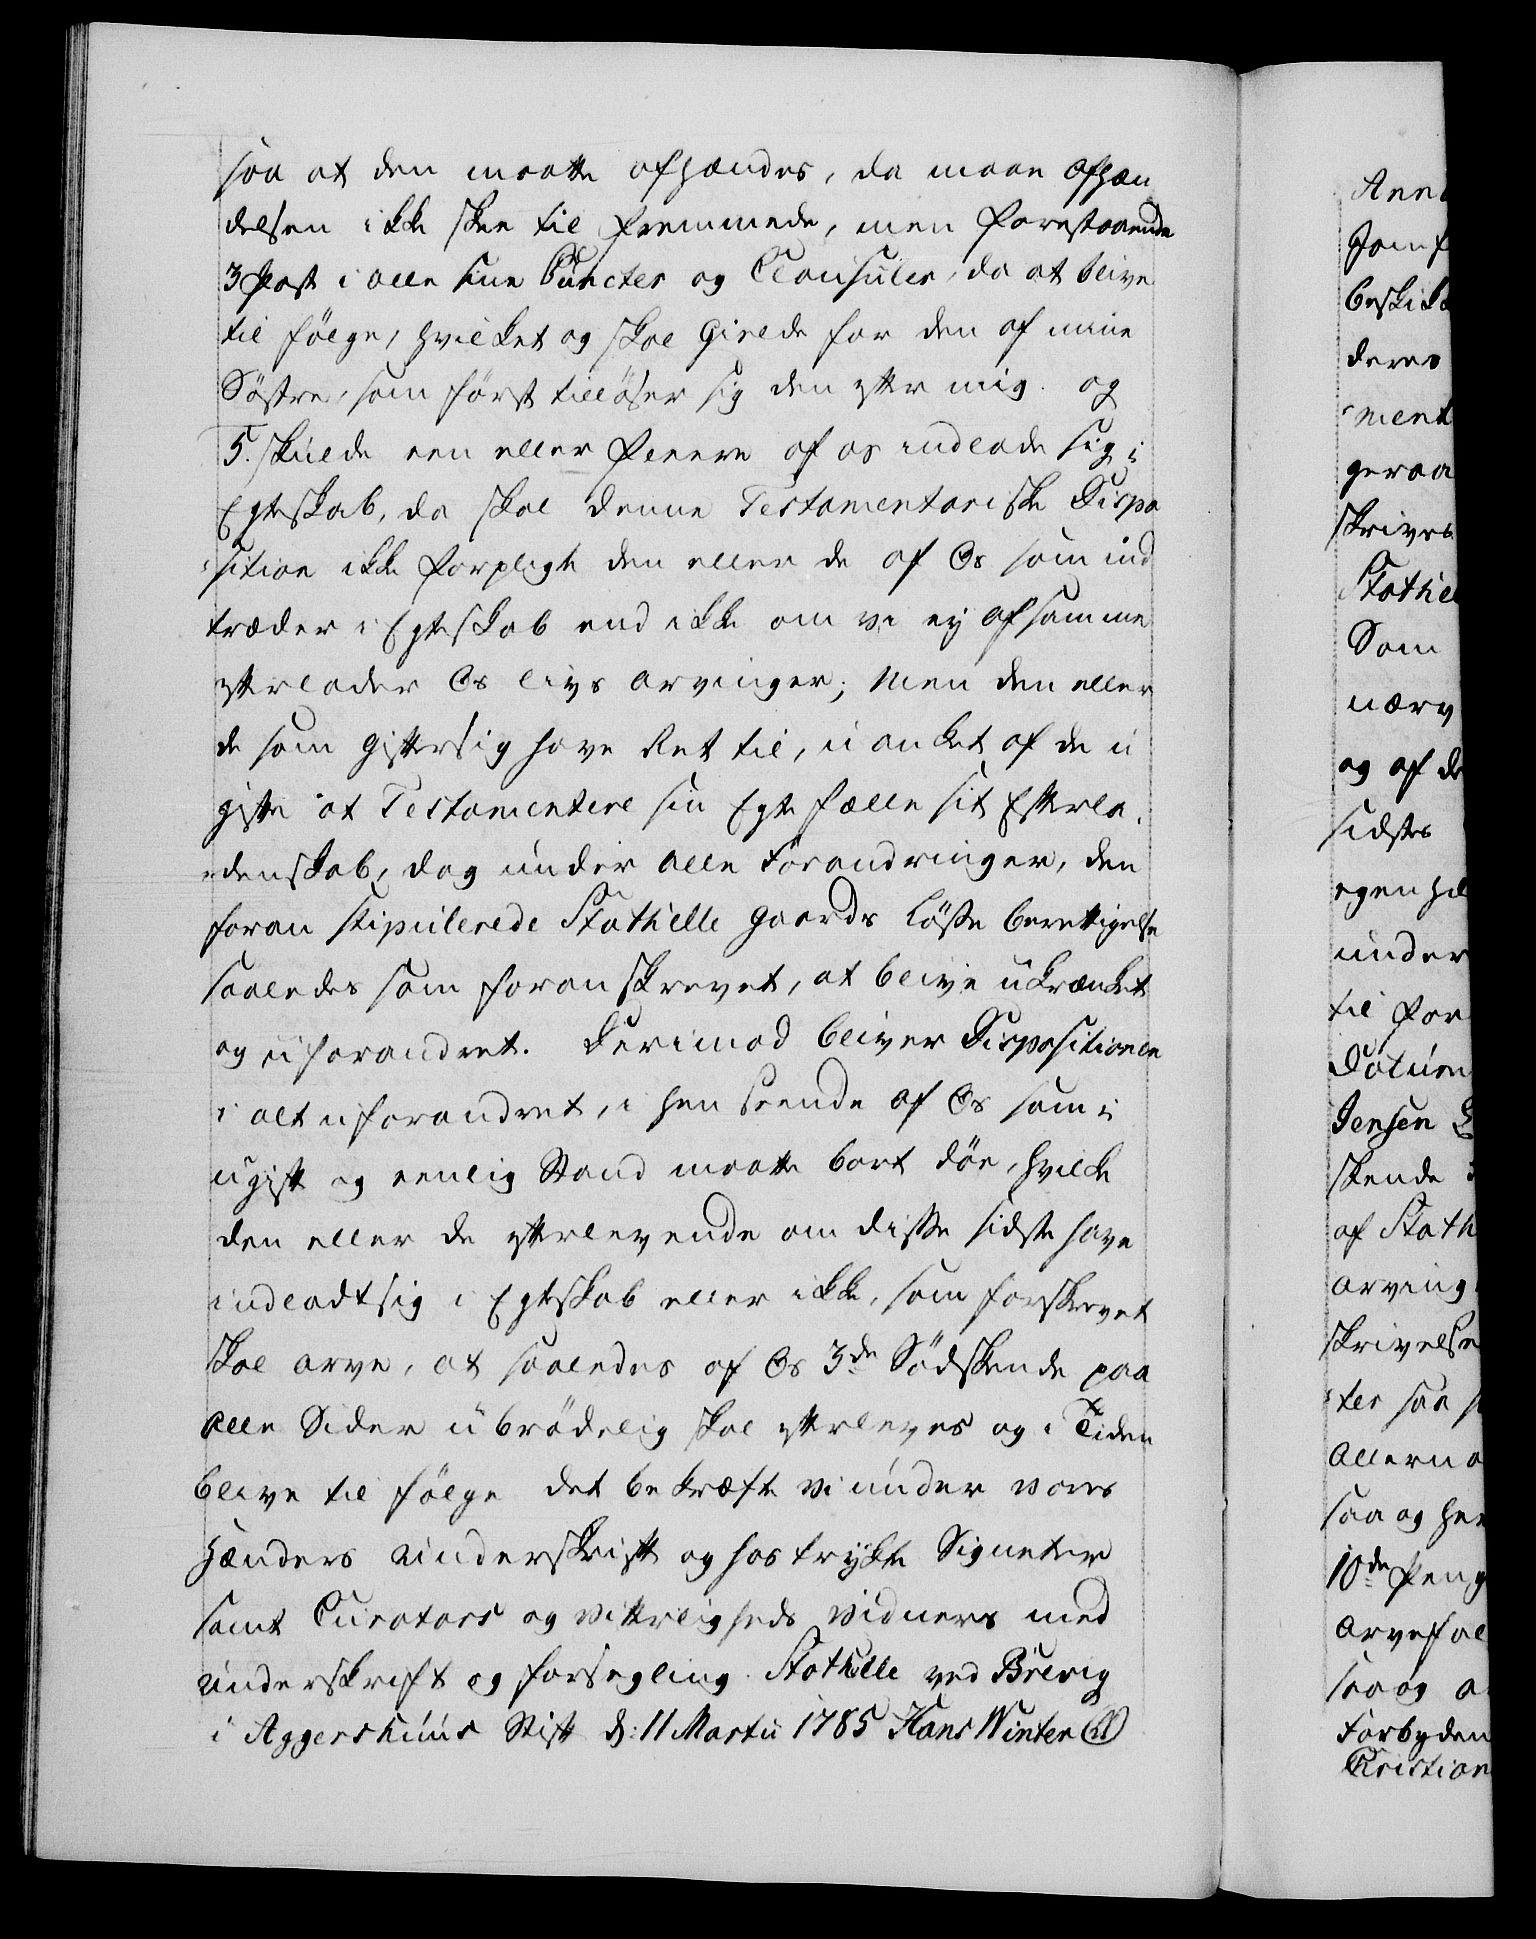 saa at den maatte afhændes, da maae Afhæn
delsen ikke skee til fremmede, men forestaaende
3 Post i alle sine Puncter og Clausuler, da at blive
til følge, hvilket og skal gielde for den af mine
Søstre, som først tilløser sig den efter mig. og
5. skulde een eller fleere af os indlade sig i
Egteskab, da skal denne Testamentariske Dispo
sition ikke forpligte den eller de af Os som ind
træder i Egteskab end ikke om vi ey af samme
efterlader Os livs Arvinger; Men den eller
de som gifter sig have Ret til, uanket af de u
gifte at Testamentere sin Egte fælle sit Efterla,
denskab, dog under alle Forandringer, den
foran stipulerede Stathelle Gaards Løsse berettigelse
saaledes som foran skrevet, at blive ukrænket
og uforandret. Derimod bliver Dispositionen
i alt uforandret, i hen seende af Os som i
ugift og eenlig Stand maatte bort døe, hvilke
den eller de efterlevende om disse sidste have
indladt sig i Egteskab eller ikke, som forskrevet
skal arve, at saaledes af Os 3de Sødskende paa
alle Sider ubrødelig skal efterleves og i Tiden
blive til følge det bekræfte vi under vores
Hænders Underskrift og hos trykte Signeter
samt Curators og vitterligheds Vidners med
underskrift og forsegling. Stathelle ved Brevig
i Aggershuus Stift d: 11 Martii 1785 Hans Winter
Jomf
beskik
deres
ment
geraa
skrives
Stathel
Som
nærv
og af de
sidstes
egenhæ
under
til for
Datum
Jensen
skende
af Stath
arving
skrivelse
ter saa
Allerna
saa og her
10de Peng
Arvefal
saa og
Forbyden
Christian